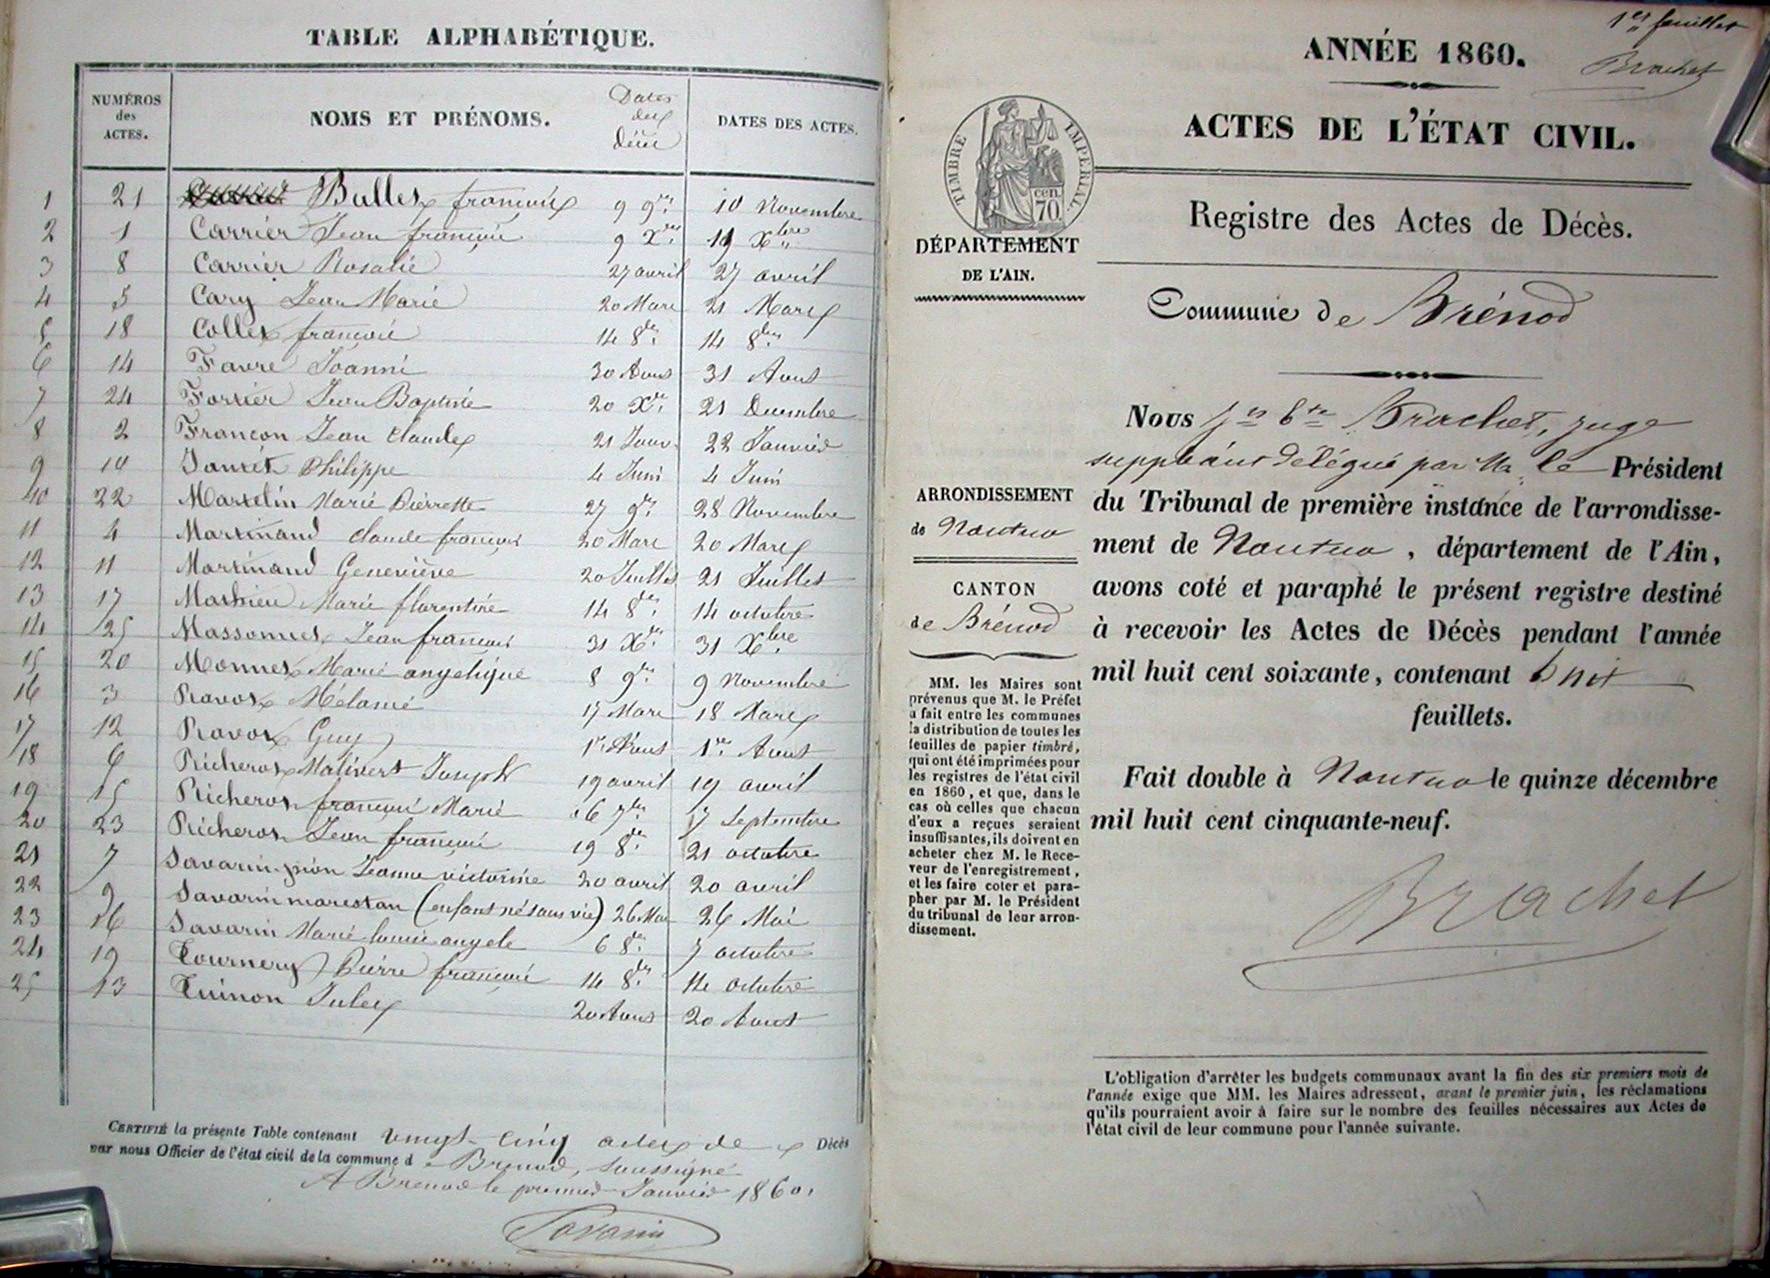 TABLE ALPHABÉTIQUE.
NUMÉROS des ACTES. NOMS ET PRÉNOMS. Dates des Décès DATES DES ACTES.
1 21 Bullet françois 9 9bre 10 Novembre
2 1 Carrier Jean françois 9 Xbre
3 8 Carrier Rosalie 27 avril 27 avril
4 5 Cary Jean Marie 20 Mars 21 Mars
5 18 Collet françois 14 8bre 14 8bre
6 14 Favre Joanni 30 Aout 31 Aout
7 24 Forrier Jean Baptiste 20 Xbre 21 Decembre
8 2 Françon Jean Claude 21 Janv. 22 Janvier
9 10 Philippe 4 Juin 4 Juin
10 22 Martelin Marie Pierrette 27 9bre 28 Novembre
11 4 Martinand claude françois 20 Mars 20 Mars
12 11 Martinand Geneviève 20 Juillet 21 Juillet
13 17 Mathieu Marie florentine 14 8bre 14 octobre
14 25 Massonnet Jean françois 31 Xbre 31 Xbre
15 20 Monnet Marie angelique 8 9bre 9 Novembre
16 3 Ravot Mélanie 17 Mars 18 Mars
17 12 Ravot Guy 1er Aout 1er Aout
18 6 Richerot Malivert Joseph 19 avril 19 avril
19 15 Richerot françois Marie 6 7bre 7 Septembre
20 23 Richerot Jean françois 19 8bre 21 octobre
21 7 Savarin-pion Jeanne victorine 20 avril 20 avril
22 9 Savarin marestan (enfant né sans vie) 26 Mai 26 Mai
23 16 Savarin Marie louise angele 6 8bre 7 octobre
24 19 Tournery Pierre françois 14 8bre 14 octobre
25 13 Tuinon Jules 20 Aout 20 Aout
CERTIFIÉ la présente Table contenant vingt-cinq actes de Décès
par nous Officier de l'état civil de la commune de Brenod, soussigné
A Brenod le premier Janvier 1860.
Savarin
1er feuillet
Brachet
ANNÉE 1860.
ACTES DE L'ÉTAT CIVIL.
TIMBRE IMPERIAL.
70 cen.
Registre des Actes de Décès.
DÉPARTEMENT
DE L'AIN.
Commune de Brénod
ARRONDISSEMENT
de Nantua
CANTON
de Brénod
MM. les Maires sont
prévenus que M. le Préfet
a fait entre les communes
la distribution de toutes les
feuilles de papier timbré,
qui ont été imprimées pour
les registres de l'état civil
en 1860, et que, dans le
cas où celles que chacun
d'eux a reçues seraient
insuffisantes, ils doivent en
acheter chez M. le Rece-
veur de l'enregistrement,
et les faire coter et para-
pher par M. le Président
du tribunal de leur arron-
dissement.
Nous Jn Bte Brachet, juge
suppléant délégué par Mr le Président
du Tribunal de première instance de l'arrondisse-
ment de Nantua, département de l'Ain,
avons coté et paraphé le présent registre destiné
à recevoir les Actes de Décès pendant l'année
mil huit cent soixante, contenant huit
feuillets.
Fait double à Nantua le quinze décembre
mil huit cent cinquante-neuf.
Brachet
L'obligation d'arrêter les budgets communaux avant la fin des six premiers mois de
l'année exige que MM. les Maires adressent, avant le premier juin, les réclamations
qu'ils pourraient avoir à faire sur le nombre des feuilles nécessaires aux Actes de
l'état civil de leur commune pour l'année suivante.